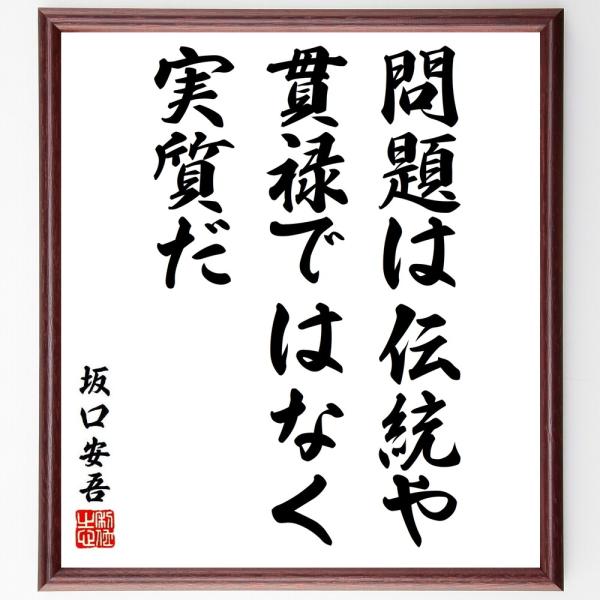 問題は伝統や
貫禄ではなく
実質だ
坂口安吾